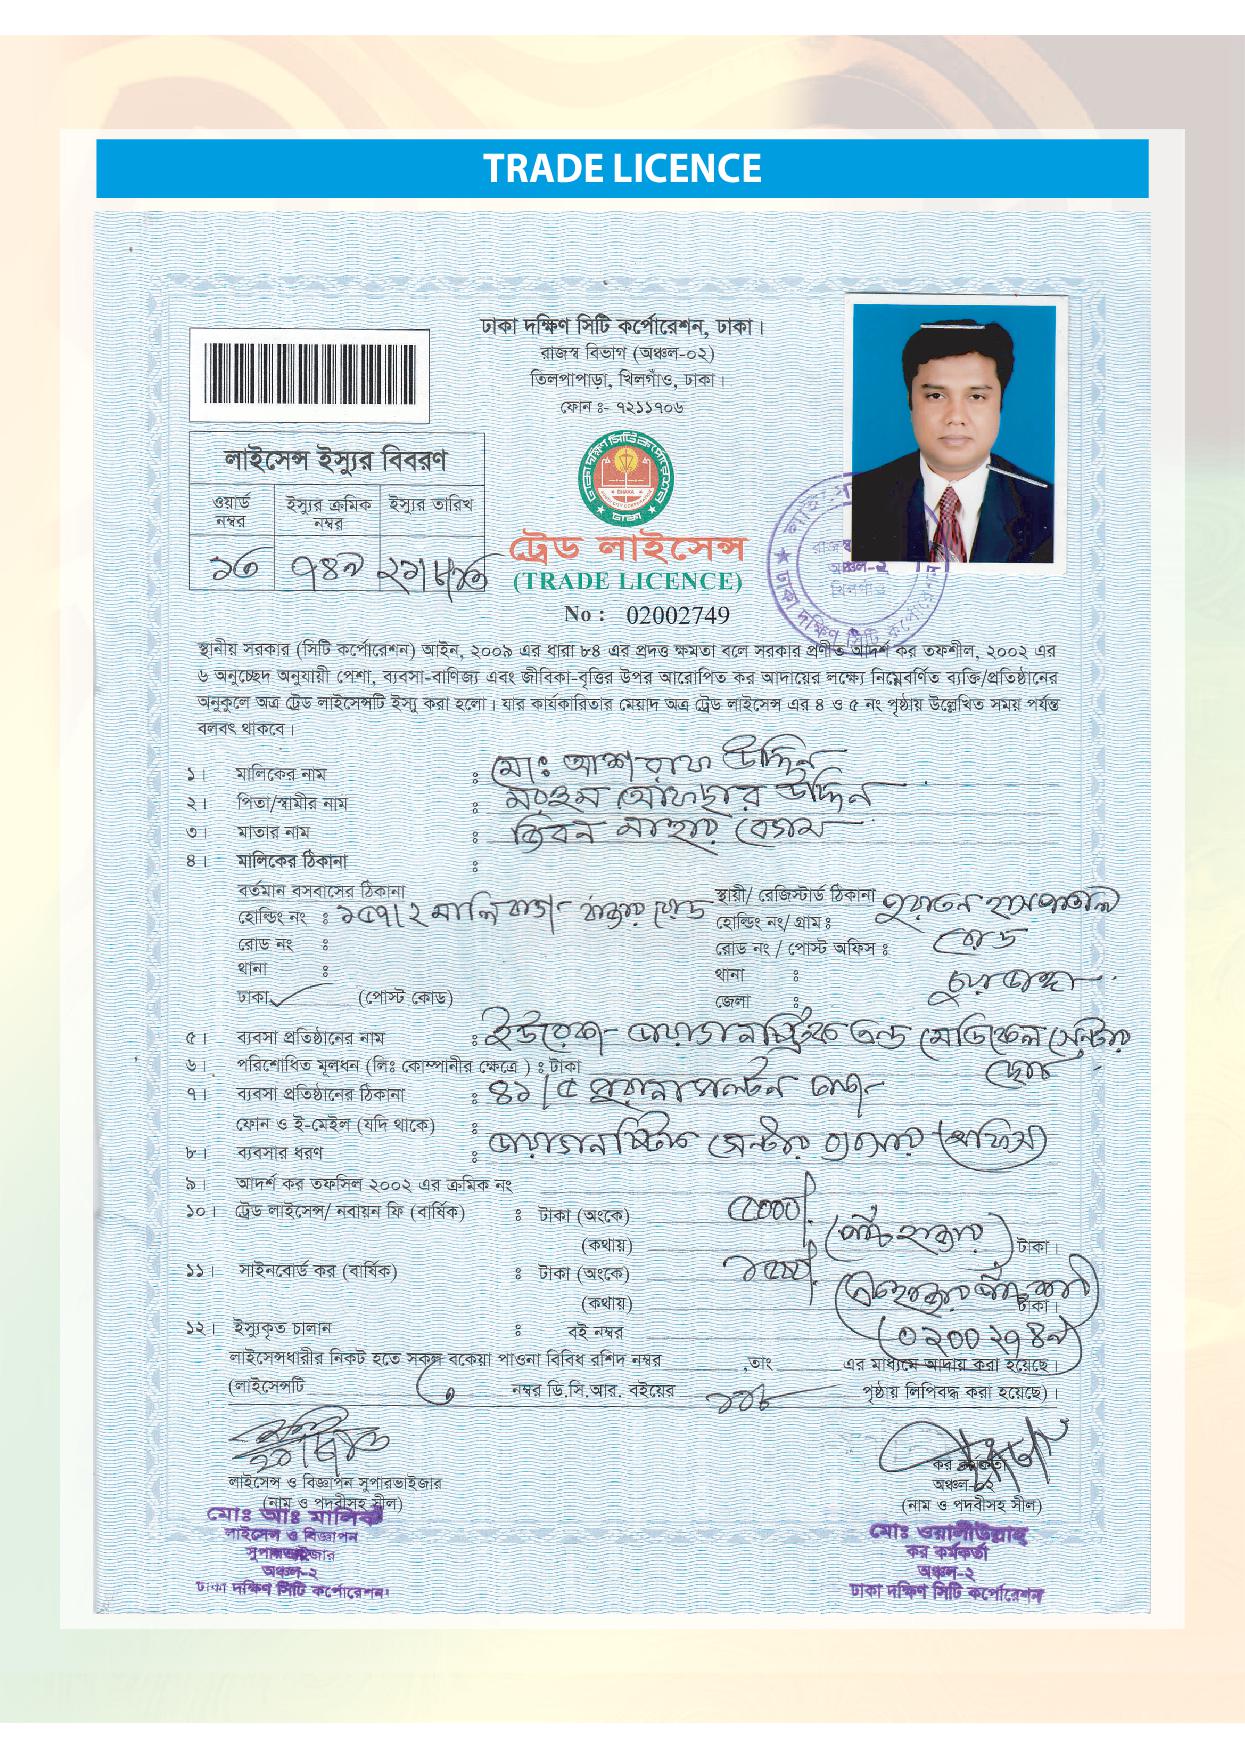 TRADE LICENCE
ঢাকা দক্ষিণ সিটি কর্পোরেশন, ঢাকা।
রাজস্ব বিভাগ (অঞ্চল-০২)
তিলপাপাড়া, খিলগাঁও, ঢাকা।
ফোন ঃ- ৭২১১৭০৬
লাইসেন্স ইস্যুর বিবরণ
ওয়ার্ড নম্বর
ইস্যুর ক্রমিক নম্বর
ইস্যুর তারিখ
৭৪৯
ট্রেড লাইসেন্স
(TRADE LICENCE)
No : 02002749
স্থানীয় সরকার (সিটি কর্পোরেশন) আইন, ২০০৯ এর ধারা ৮৪ এর প্রদত্ত ক্ষমতা বলে সরকার প্রণীত আদর্শ কর তফশীল, ২০০২ এর
৬ অনুচ্ছেদ অনুযায়ী পেশা, ব্যবসা-বাণিজ্য এবং জীবিকা-বৃত্তির উপর আরোপিত কর আদায়ের লক্ষ্যে নিম্নেবর্ণিত ব্যক্তি/প্রতিষ্ঠানের
অনুকূলে অত্র ট্রেড লাইসেন্সটি ইস্যু করা হলো। যার কার্যকারিতার মেয়াদ অত্র ট্রেড লাইসেন্স এর ৪ ও ৫ নং পৃষ্ঠায় উল্লেখিত সময় পর্যন্ত
বলবৎ থাকবে।
১। মালিকের নাম ঃ মোঃ আশরাফ উদ্দিন
২। পিতা/স্বামীর নাম ঃ মরহুম আফছার উদ্দিন
৩। মাতার নাম ঃ বেগম
৪। মালিকের ঠিকানা ঃ
বর্তমান বসবাসের ঠিকানা
হোল্ডিং নং ঃ ১৫৭/২ মালিবাগ
রোড নং ঃ
থানা ঃ
ঢাকা (পোস্ট কোড)
স্থায়ী/ রেজিস্টার্ড ঠিকানা পুরাতন হাসপাতাল
হোল্ডিং নং/ গ্রাম ঃ রোড
রোড নং / পোস্ট অফিস ঃ
থানা ঃ চুয়াডাঙ্গা
জেলা ঃ
৫। ব্যবসা প্রতিষ্ঠানের নাম ঃ ইউরেকা ডায়াগনষ্টিক এন্ড মেডিকেল সেন্টার
৬। পরিশোধিত মূলধন (লিঃ কোম্পানীর ক্ষেত্রে ) ঃ টাকা
৭। ব্যবসা প্রতিষ্ঠানের ঠিকানা ঃ ৪১/৫ পুরানা পল্টন ঢাকা
ফোন ও ই-মেইল (যদি থাকে) ঃ
৮। ব্যবসার ধরণ ঃ ডায়াগনষ্টিক সেন্টার ব্যবসায় (অফিস)
৯। আদর্শ কর তফসিল ২০০২ এর ক্রমিক নং
১০। ট্রেড লাইসেন্স/ নবায়ন ফি (বার্ষিক) ঃ টাকা (অংকে) ৫০০০/-
(কথায়) (পাঁচ হাজার) টাকা।
১১। সাইনবোর্ড কর (বার্ষিক) ঃ টাকা (অংকে)
(কথায়) টাকা।
১২। ইস্যুকৃত চালান ঃ বই নম্বর (০২০০২৭৪৯)
লাইসেন্সধারীর নিকট হতে সকল বকেয়া পাওনা বিবিধ রশিদ নম্বর ,তাং এর মাধ্যমে আদায় করা হয়েছে।
(লাইসেন্সটি নম্বর ডি.সি.আর. বইয়ের পৃষ্ঠায় লিপিবদ্ধ করা হয়েছে)।
লাইসেন্স ও বিজ্ঞাপন সুপারভাইজার
(নাম ও পদবীসহ সীল)
মোঃ আঃ মালিক
লাইসেন্স ও বিজ্ঞাপন
সুপারভাইজার
অঞ্চল-২
ঢাকা দক্ষিণ সিটি কর্পোরেশন।
কর কর্মকর্তা
অঞ্চল-০২
(নাম ও পদবীসহ সীল)
মোঃ ওয়ালীউল্লাহ
কর কর্মকর্তা
অঞ্চল-২
ঢাকা দক্ষিণ সিটি কর্পোরেশন